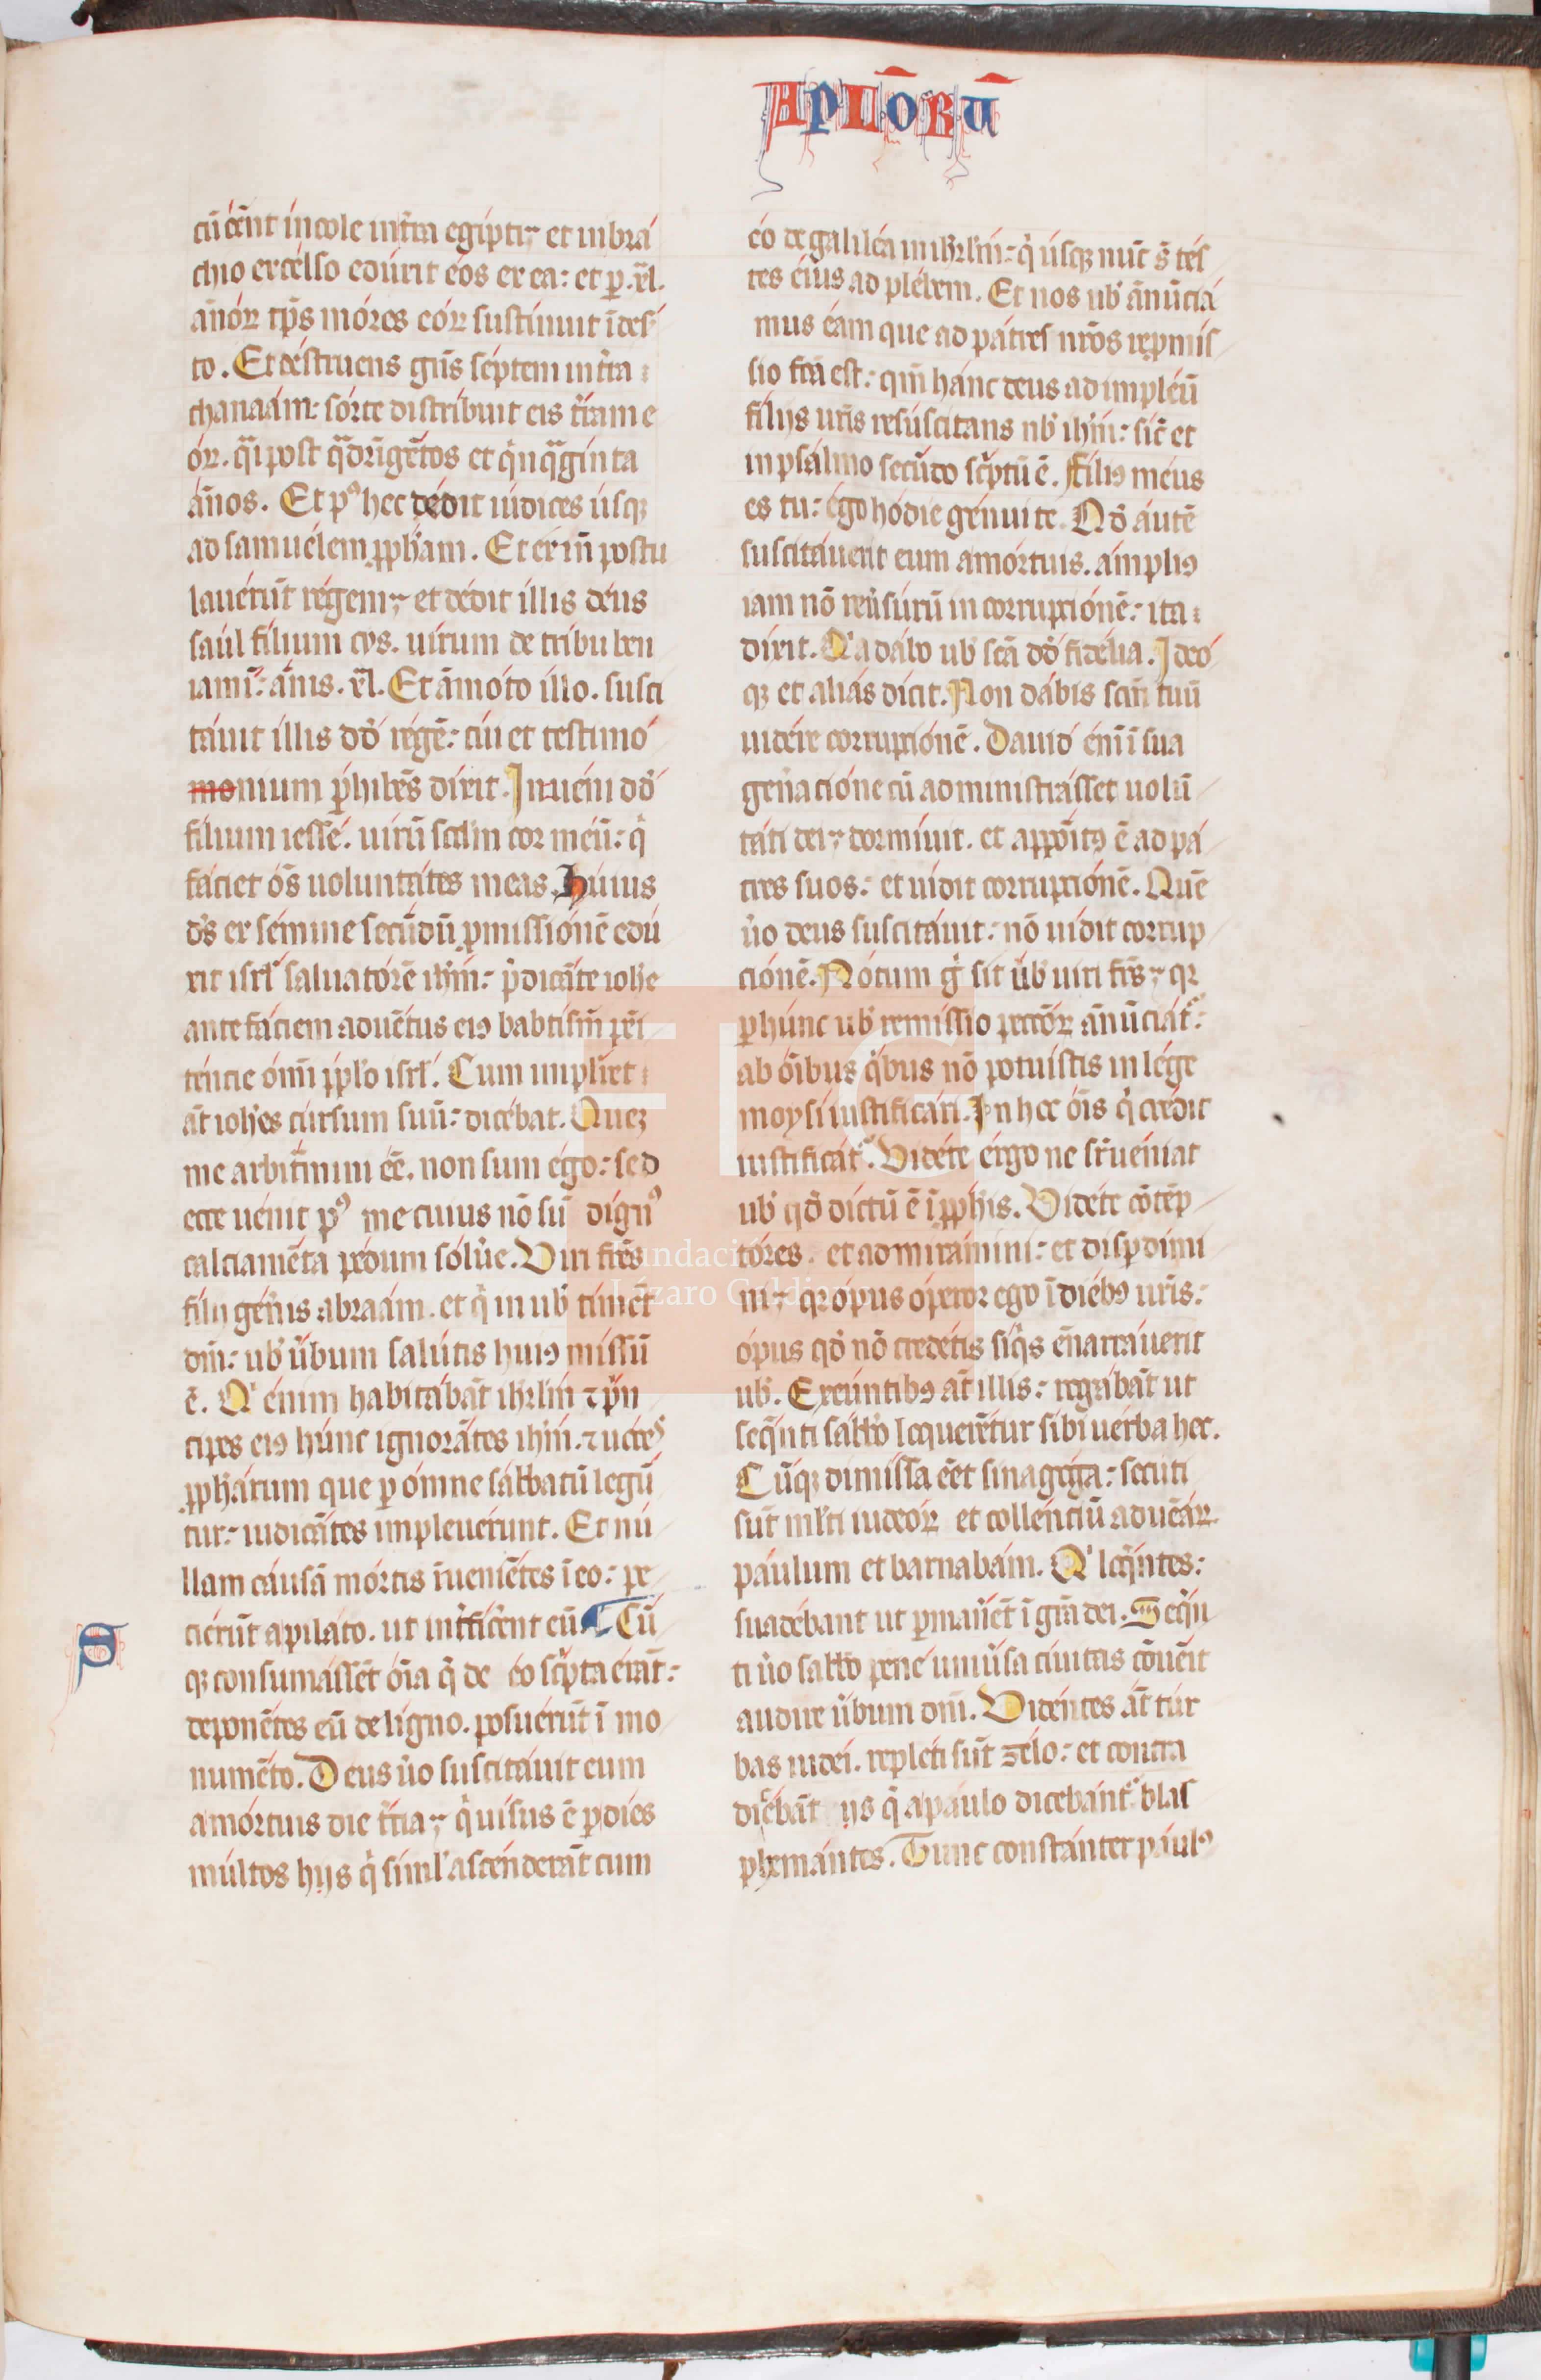 APLŌRŪ
cū éēnt íncole int̄ra egipti; et in bra
chio excelso edúxit éos ex ea: et p .xl.
ānóꝝ tp̄s móres eóꝝ sustínuit ī des
to. Et déstruens gn̄s séptem in t̄ra
chanaám: sórte distríbuit eis t̄ram e
óꝝ. q̄i post q̄dringētos et qͥnq̄gínta
ānos. Et pꝰ hec dédit iúdices úsqꝫ
ad samuélem ꝓph̄am. Et exīn postu
lauérūt régem; et dédit illis déus
saúl fílium cys. uírum de tríbu ben
iamī: ānis .xl. Et āmóto illo. susci
táuit illis dd̄ régē: cui et testimó
monium ꝑhibēs díxit. Inuéni dd̄
fílium iessé. uírū scd̄m cor meū: qͥ
fáciet ōs uoluntátes meas. Húius
ds̄ ex sémine secūdū ꝓmissiónē edú
xit isrl̄ saluatórē ih̄m: p̄dicāte ioh̄e
ante fáciem aduētus eiꝰ babtism̄ pēi
téncie ómī ppl̄o isrl̄. Cum impléret
āt ioh̄es cúrsum suū: dicébat. Quez
me arbitrámini éē. non sum égo: sed
ecce uénit pꝰ me cuius nō sū dígnꝰ
calciamēta pédum sólūe. Viri frēs
filij gén̄is abraám. et qͥ in ub̄ tíment
dm̄: ub̄ ūbum salútis huiꝰ missū
ē. Qͥ énim habitábāt ih̄rlm̄ ⁊ pͥn
cipes eiꝰ húnc ignorātes ih̄m. ⁊ uoces
ꝓph̄árum que ꝑ ómne sábbatū legū
tur: iudicātes impleuérunt. Et nú
llam cáusā mórtis īueniētes ī eo: pe
ciérūt a piláto. ut int̄ficēnt eū. ¶ Cū
qꝫ consumássēt ōia q̄ de éo scͥpta érāt:
deponētes eū de lígno. posuérūt ī mo
numēto. Deus ūo suscitáuit eum
a mórtuis die t̄tia; qͥ uísus ē ꝑ dies
múltos hijs qͥ símul ascénderāt cum
S
éo de galiléa in ih̄rlm̄: qͥ úsqꝫ nūc s̄ tés
tes éius ad plébem. Et nos ub̄ ānūciá
mus éam que ad pátres nr̄os repmís
sio fcā est: qm̄ hánc deus adimpléū
filijs ur̄is resúscitans nb̄ ih̄m: sic̄ et
in psálmo secūdo scͥptū ē. Filiꝰ méus
es tu: égo hódie génui te. Qd̄ áutē
suscitáuerit eum a mórtuis. ámpliꝰ
iam nō reūsúrū in corrupciónē: ita
díxit. Qͥa dábo ub̄ scā dd̄ fidélia. Ideó
qꝫ et aliás dícit. Non dábis scm̄ tuū
uidére corrupciónē. Dauid énī ī sua
gen̄acióne cū administrásset uolū
táti dei; dormíuit. et appōitꝰ ē ad pá
tres suos: et uídit corrupciónē. Quē
ūo deus suscitáuit: nō uídit corrup
ciónē. Nótum gͥ sit ūb uiri frēs; qꝛ
ꝑ húnc ub̄ remíssio peccōꝝ ānūciát̉:
ab ōibus qͥbus nō potuístis in lége
moysi iustificári. In hec ōis qͥ crédit
iustificát̉. Vidéte érgo ne sr̄uéniat
ub̄ qd̄ díctū ē ī ꝓph̄is. Vidéte cōtēp
tóres. et admirámini: et dispdími
ni; qꝛ ópus óperor ego ī diébꝰ ur̄is:
ópus qd̄ nō credétis síqͥs ēnarráuerit
ub̄. Exeúntibꝰ āt illis: rogábāt ut
seqūti sábbo loqueréntur sibi uérba hec.
Cūqꝫ dimíssa éēt sinagóga: secúti
sūt ml̄ti iudeóꝝ et colléntiū aduēáꝝ
páulum et bárnabam. Qͥ loqūntes:
suadébant ut ꝑmanérēt ī grā dei. Seqūn
ti ūo sábbo pene uniūsa ciuitas cōuēit
audire ūbum dni. Vidéntes āt túr
bas iudéi. repléti sūt zélo: et contra
dicébāt ijs q̄ a páulo dicebánt̉ blas
phemántes. Tunc constánter páulꝰ